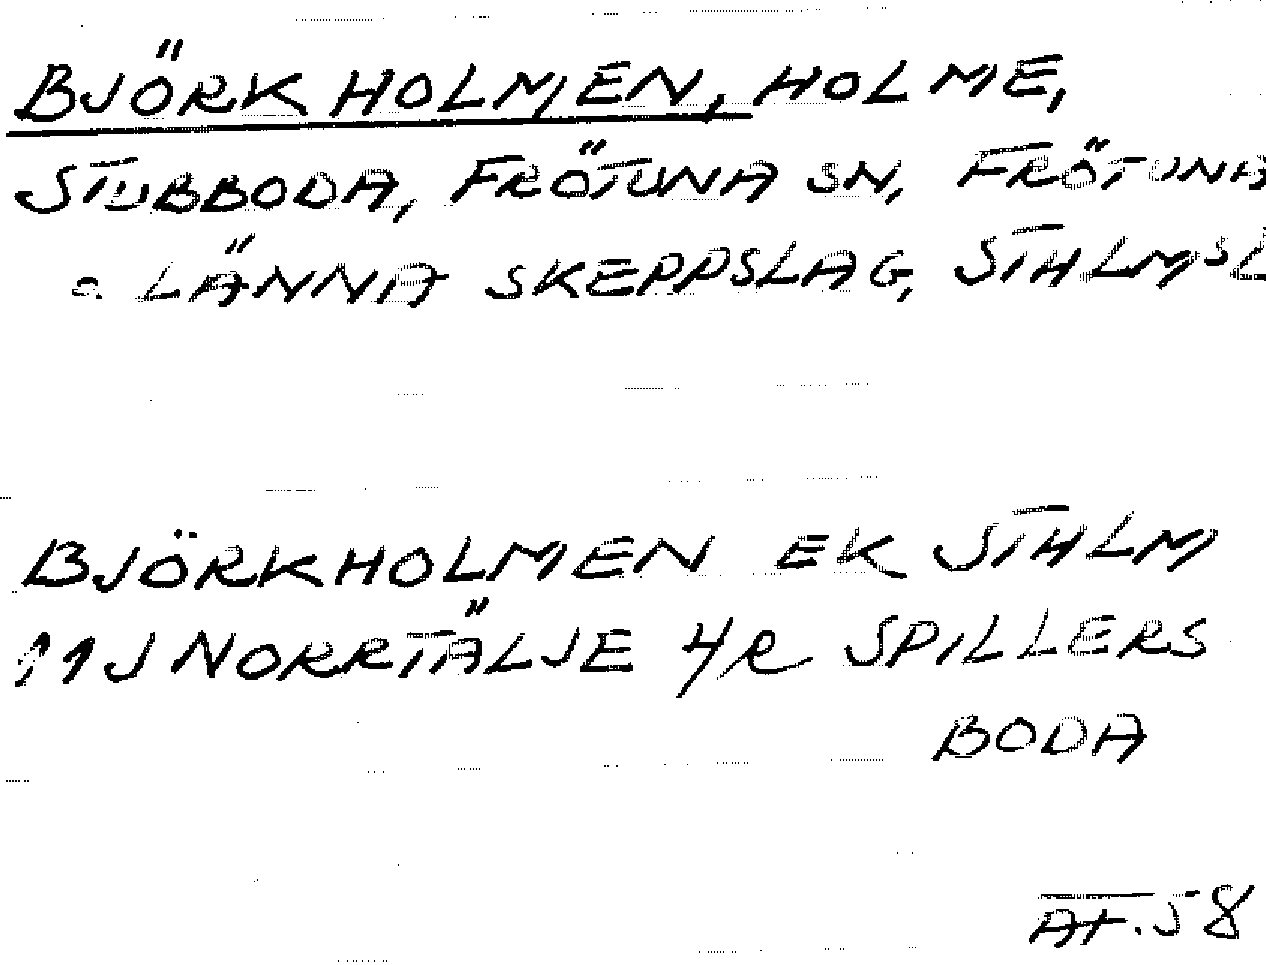 BJÖRKHOLMEN, HOLME,
STUBBODA, FRÖTUNA SN, FRÖTUNA
O. LÄNNA SKEPPSLAG, STHLMSL
BJÖRKHOLMEN EK STHLM
11J NORRTÄLJE 4R SPILLERS
BODA
AT. 58